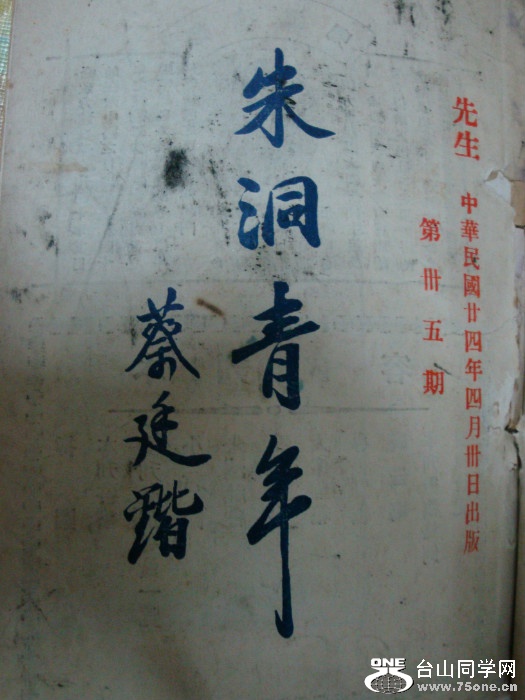 先生 中華民國廿四年四月卅日出版
第卅五期
朱洞青年
蔡廷鍇
ONE 台山同学网
www.75one.cn